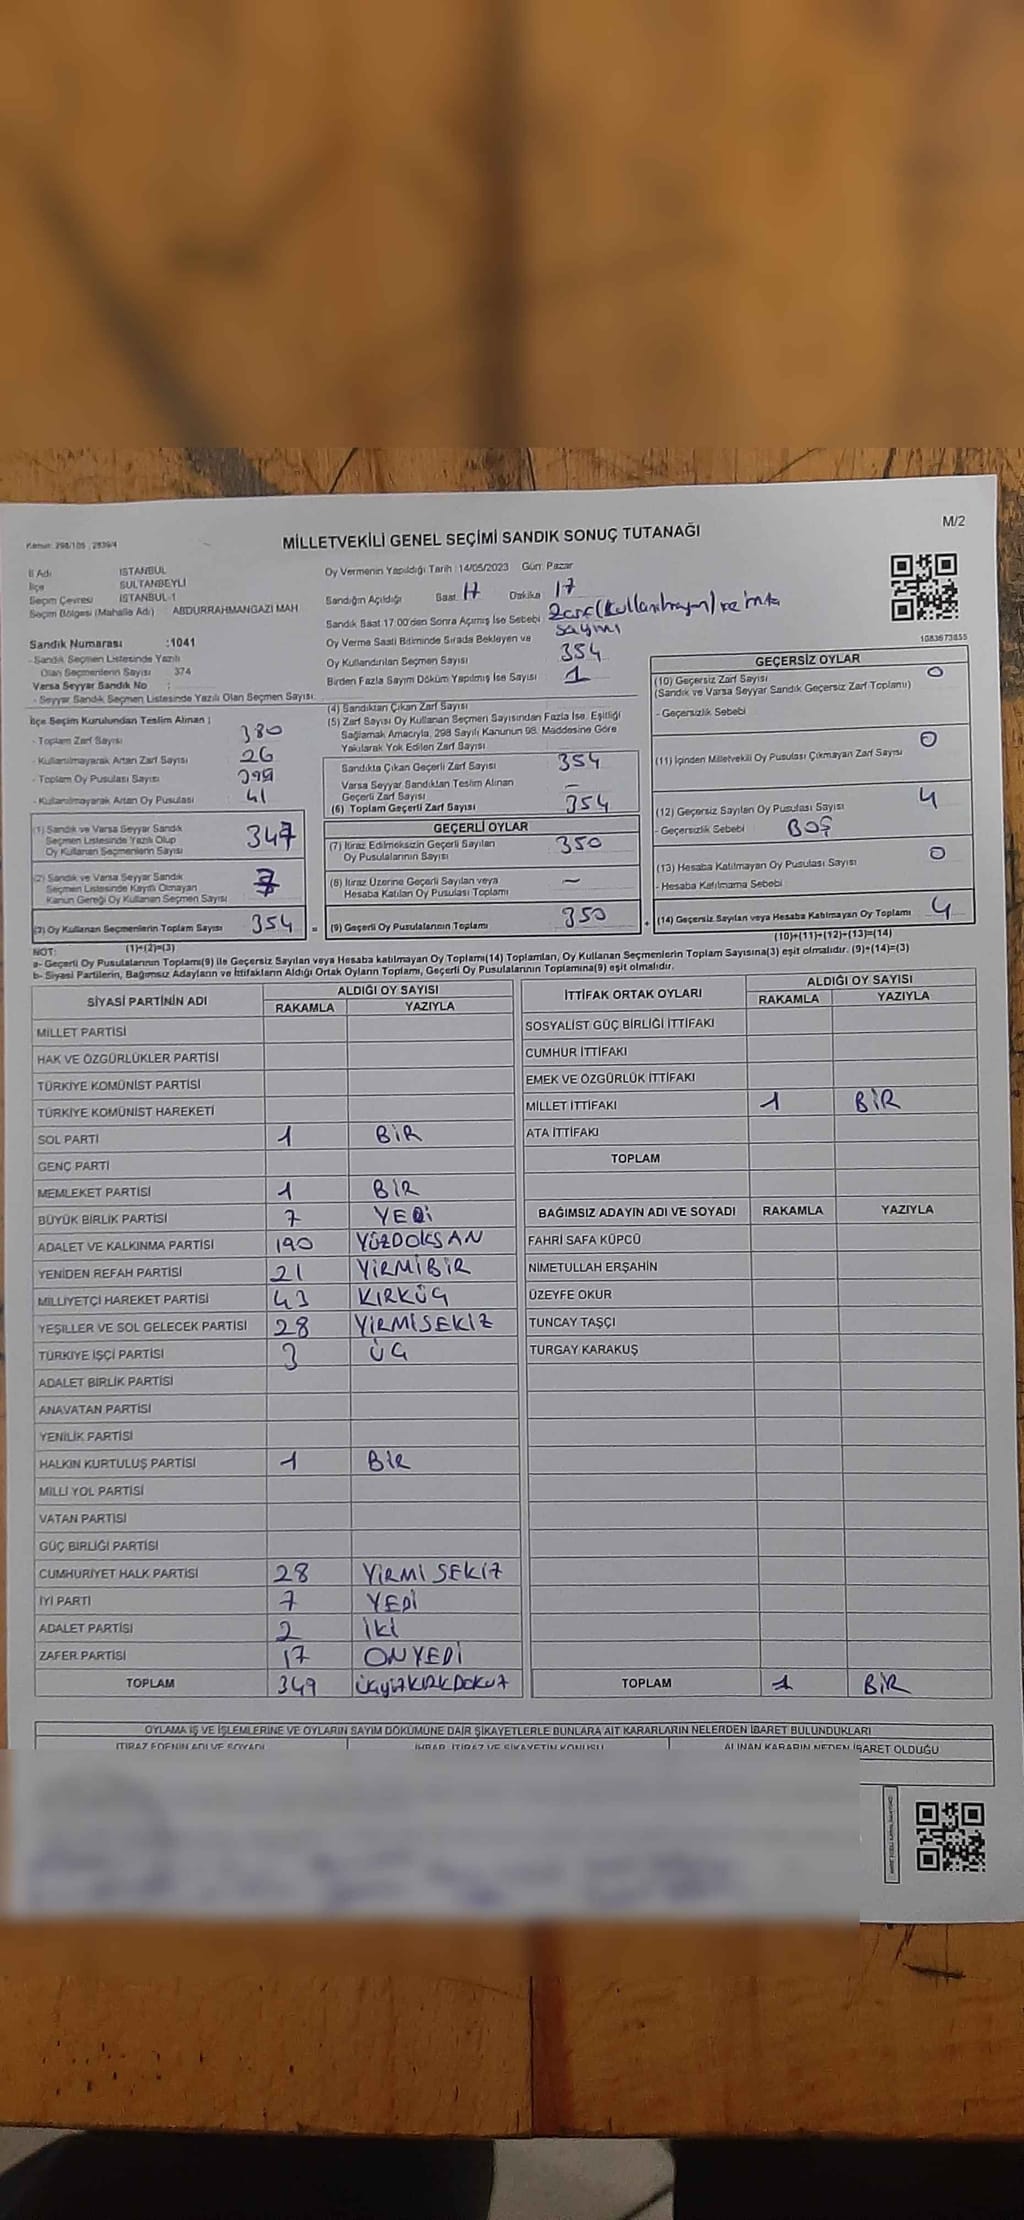 M/2
Kanun: 298/105 ; 2839/4
MİLLETVEKİLİ GENEL SEÇİMİ SANDIK SONUÇ TUTANAĞI
İl Adı İSTANBUL
İlçe SULTANBEYLİ
Seçim Çevresi İSTANBUL-1
Seçim Bölgesi (Mahalle Adı) : ABDURRAHMANGAZİ MAH
Oy Vermenin Yapıldığı Tarih : 14/05/2023 Gün: Pazar
Sandığın Açıldığı Saat: 17 Dakika 17
Sandık Saat 17:00'den Sonra Açımış İse Sebebi : Zarf (kullanılmayan) ve imza
sayımı
Oy Verme Saati Bitiminde Sırada Bekleyen ve
Oy Kullandırılan Seçmen Sayısı 354
Birden Fazla Sayım Döküm Yapılmış İse Sayısı : 1
1083673855
Sandık Numarası :1041
- Sandık Seçmen Listesinde Yazılı
Olan Seçmenlerin Sayısı : 374
Varsa Seyyar Sandık No :
- Seyyar Sandık Seçmen Listesinde Yazılı Olan Seçmen Sayısı:
İlçe Seçim Kurulundan Teslim Alınan ;
- Toplam Zarf Sayısı 380
- Kullanılmayarak Artan Zarf Sayısı 26
- Toplam Oy Pusulası Sayısı
- Kullanılmayarak Artan Oy Pusulası 41
(1) Sandık ve Varsa Seyyar Sandık
Seçmen Listesinde Yazılı Olup
Oy Kullanan Seçmenlerin Sayısı 347
(2) Sandık ve Varsa Seyyar Sandık
Seçmen Listesinde Kayıtlı Olmayan
Kanun Gereği Oy Kullanan Seçmen Sayısı 7
(3) Oy Kullanan Seçmenlerin Toplam Sayısı 354 =
(1)+(2)=(3)
(4) Sandıktan Çıkan Zarf Sayısı
(5) Zarf Sayısı Oy Kullanan Seçmen Sayısından Fazla İse, Eşitliği
Sağlamak Amacıyla, 298 Sayılı Kanunun 98. Maddesine Göre
Yakılarak Yok Edilen Zarf Sayısı
Sandıkta Çıkan Geçerli Zarf Sayısı 354
Varsa Seyyar Sandıktan Teslim Alınan
Geçerli Zarf Sayısı –
(6) Toplam Geçerli Zarf Sayısı 354
GEÇERLİ OYLAR
(7) İtiraz Edilmeksizin Geçerli Sayılan
Oy Pusulalarının Sayısı 350
(8) İtiraz Üzerine Geçerli Sayılan veya
Hesaba Katılan Oy Pusulası Toplamı –
(9) Geçerli Oy Pusulalarının Toplamı 350 +
GEÇERSİZ OYLAR
(10) Geçersiz Zarf Sayısı 0
(Sandık ve Varsa Seyyar Sandık Geçersiz Zarf Toplamı)
- Geçersizlik Sebebi
(11) İçinden Milletvekili Oy Pusulası Çıkmayan Zarf Sayısı 0
(12) Geçersiz Sayılan Oy Pusulası Sayısı 4
- Geçersizlik Sebebi BOŞ
(13) Hesaba Katılmayan Oy Pusulası Sayısı 0
- Hesaba Katılmama Sebebi
(14) Geçersiz Sayılan veya Hesaba Katılmayan Oy Toplamı 4
(10)+(11)+(12)+(13)=(14)
NOT:
a- Geçerli Oy Pusulalarının Toplamı(9) ile Geçersiz Sayılan veya Hesaba katılmayan Oy Toplamı(14) Toplamları, Oy Kullanan Seçmenlerin Toplam Sayısına(3) eşit olmalıdır. (9)+(14)=(3)
b- Siyasi Partilerin, Bağımsız Adayların ve İttifakların Aldığı Ortak Oyların Toplamı, Geçerli Oy Pusulalarının Toplamına(9) eşit olmalıdır.
SİYASİ PARTİNİN ADI ALDIĞI OY SAYISI
RAKAMLA YAZIYLA
MİLLET PARTİSİ
HAK VE ÖZGÜRLÜKLER PARTİSİ
TÜRKİYE KOMÜNİST PARTİSİ
TÜRKİYE KOMÜNİST HAREKETİ
SOL PARTİ 1 BİR
GENÇ PARTİ
MEMLEKET PARTİSİ 1 BİR
BÜYÜK BİRLİK PARTİSİ 7 YEDİ
ADALET VE KALKINMA PARTİSİ 190 YÜZDOKSAN
YENİDEN REFAH PARTİSİ 21 YİRMİBİR
MİLLİYETÇİ HAREKET PARTİSİ 43 KIRKÜÇ
YEŞİLLER VE SOL GELECEK PARTİSİ 28 YİRMİSEKİZ
TÜRKİYE İŞÇİ PARTİSİ 3 ÜÇ
ADALET BİRLİK PARTİSİ
ANAVATAN PARTİSİ
YENİLİK PARTİSİ
HALKIN KURTULUŞ PARTİSİ 1 BİR
MİLLİ YOL PARTİSİ
VATAN PARTİSİ
GÜÇ BİRLİĞİ PARTİSİ
CUMHURİYET HALK PARTİSİ 28 YİRMİ SEKİZ
İYİ PARTİ 7 YEDİ
ADALET PARTİSİ 2 İKİ
ZAFER PARTİSİ 17 ONYEDİ
TOPLAM 349 ÜÇYÜZKIRKDOKUZ
İTTİFAK ORTAK OYLARI ALDIĞI OY SAYISI
RAKAMLA YAZIYLA
SOSYALİST GÜÇ BİRLİĞİ İTTİFAKI
CUMHUR İTTİFAKI
EMEK VE ÖZGÜRLÜK İTTİFAKI
MİLLET İTTİFAKI 1 BİR
ATA İTTİFAKI
TOPLAM
BAĞIMSIZ ADAYIN ADI VE SOYADI RAKAMLA YAZIYLA
FAHRİ SAFA KÜPCÜ
NİMETULLAH ERŞAHİN
ÜZEYFE OKUR
TUNCAY TAŞÇI
TURGAY KARAKUŞ
TOPLAM 1 BİR
OYLAMA İŞ VE İŞLEMLERİNE VE OYLARIN SAYIM DÖKÜMÜNE DAİR ŞİKAYETLERLE BUNLARA AİT KARARLARIN NELERDEN İBARET BULUNDUKLARI
İTİRAZ EDENİN ADI VE SOYADI İHBAR, İTİRAZ VE ŞİKAYETİN KONUSU ALINAN KARARIN NEDEN İBARET OLDUĞU